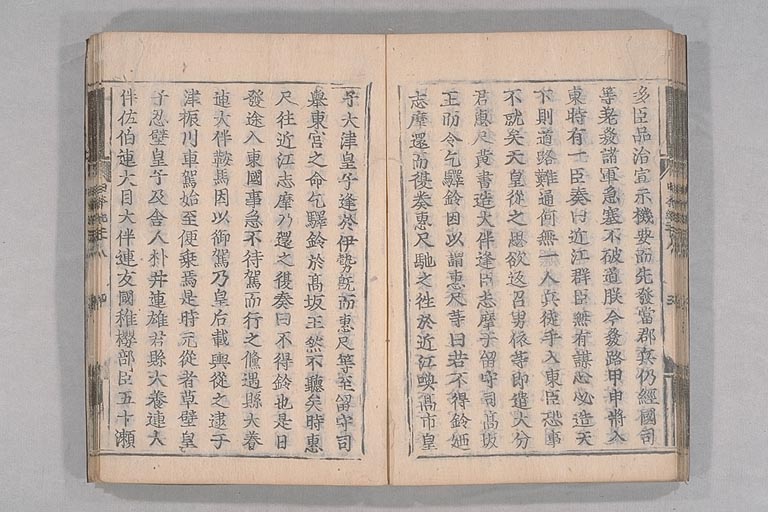 多臣品治宣示機要而先發當郡兵仍經國司
等差發諸軍急塞不破道朕今發路甲申將入
東時有一臣奏曰近江群臣無有謀心必造天
下則道路難通何無一人兵徒手入東臣恐事
不就矣天皇從之思欲返召男依等即遣大分
君惠尺黄書造大伴逢臣志摩于留守司高坂
王而令乞驛鈴因以謂惠尺等曰若不得鈴廼
志摩還而復奏惠尺馳之往於近江喚高市皇
子大津皇子逢於伊勢既而惠尺等至留守司
擧東宮之命乞驛鈴於高坂王然不聽矣時惠
尺往近江志摩乃還之復奏曰不得鈴也是日
發途入東國事急不待駕而行之儵遇縣犬養
連大伴鞍馬因以御駕乃皇后載輿從之逮于
津振川車駕始至便乘焉是時元從者草壁皇
子忍壁皇子及舍人朴井連雄君縣犬養連大
伴佐伯連大目大伴連友國稚櫻部臣五十瀬